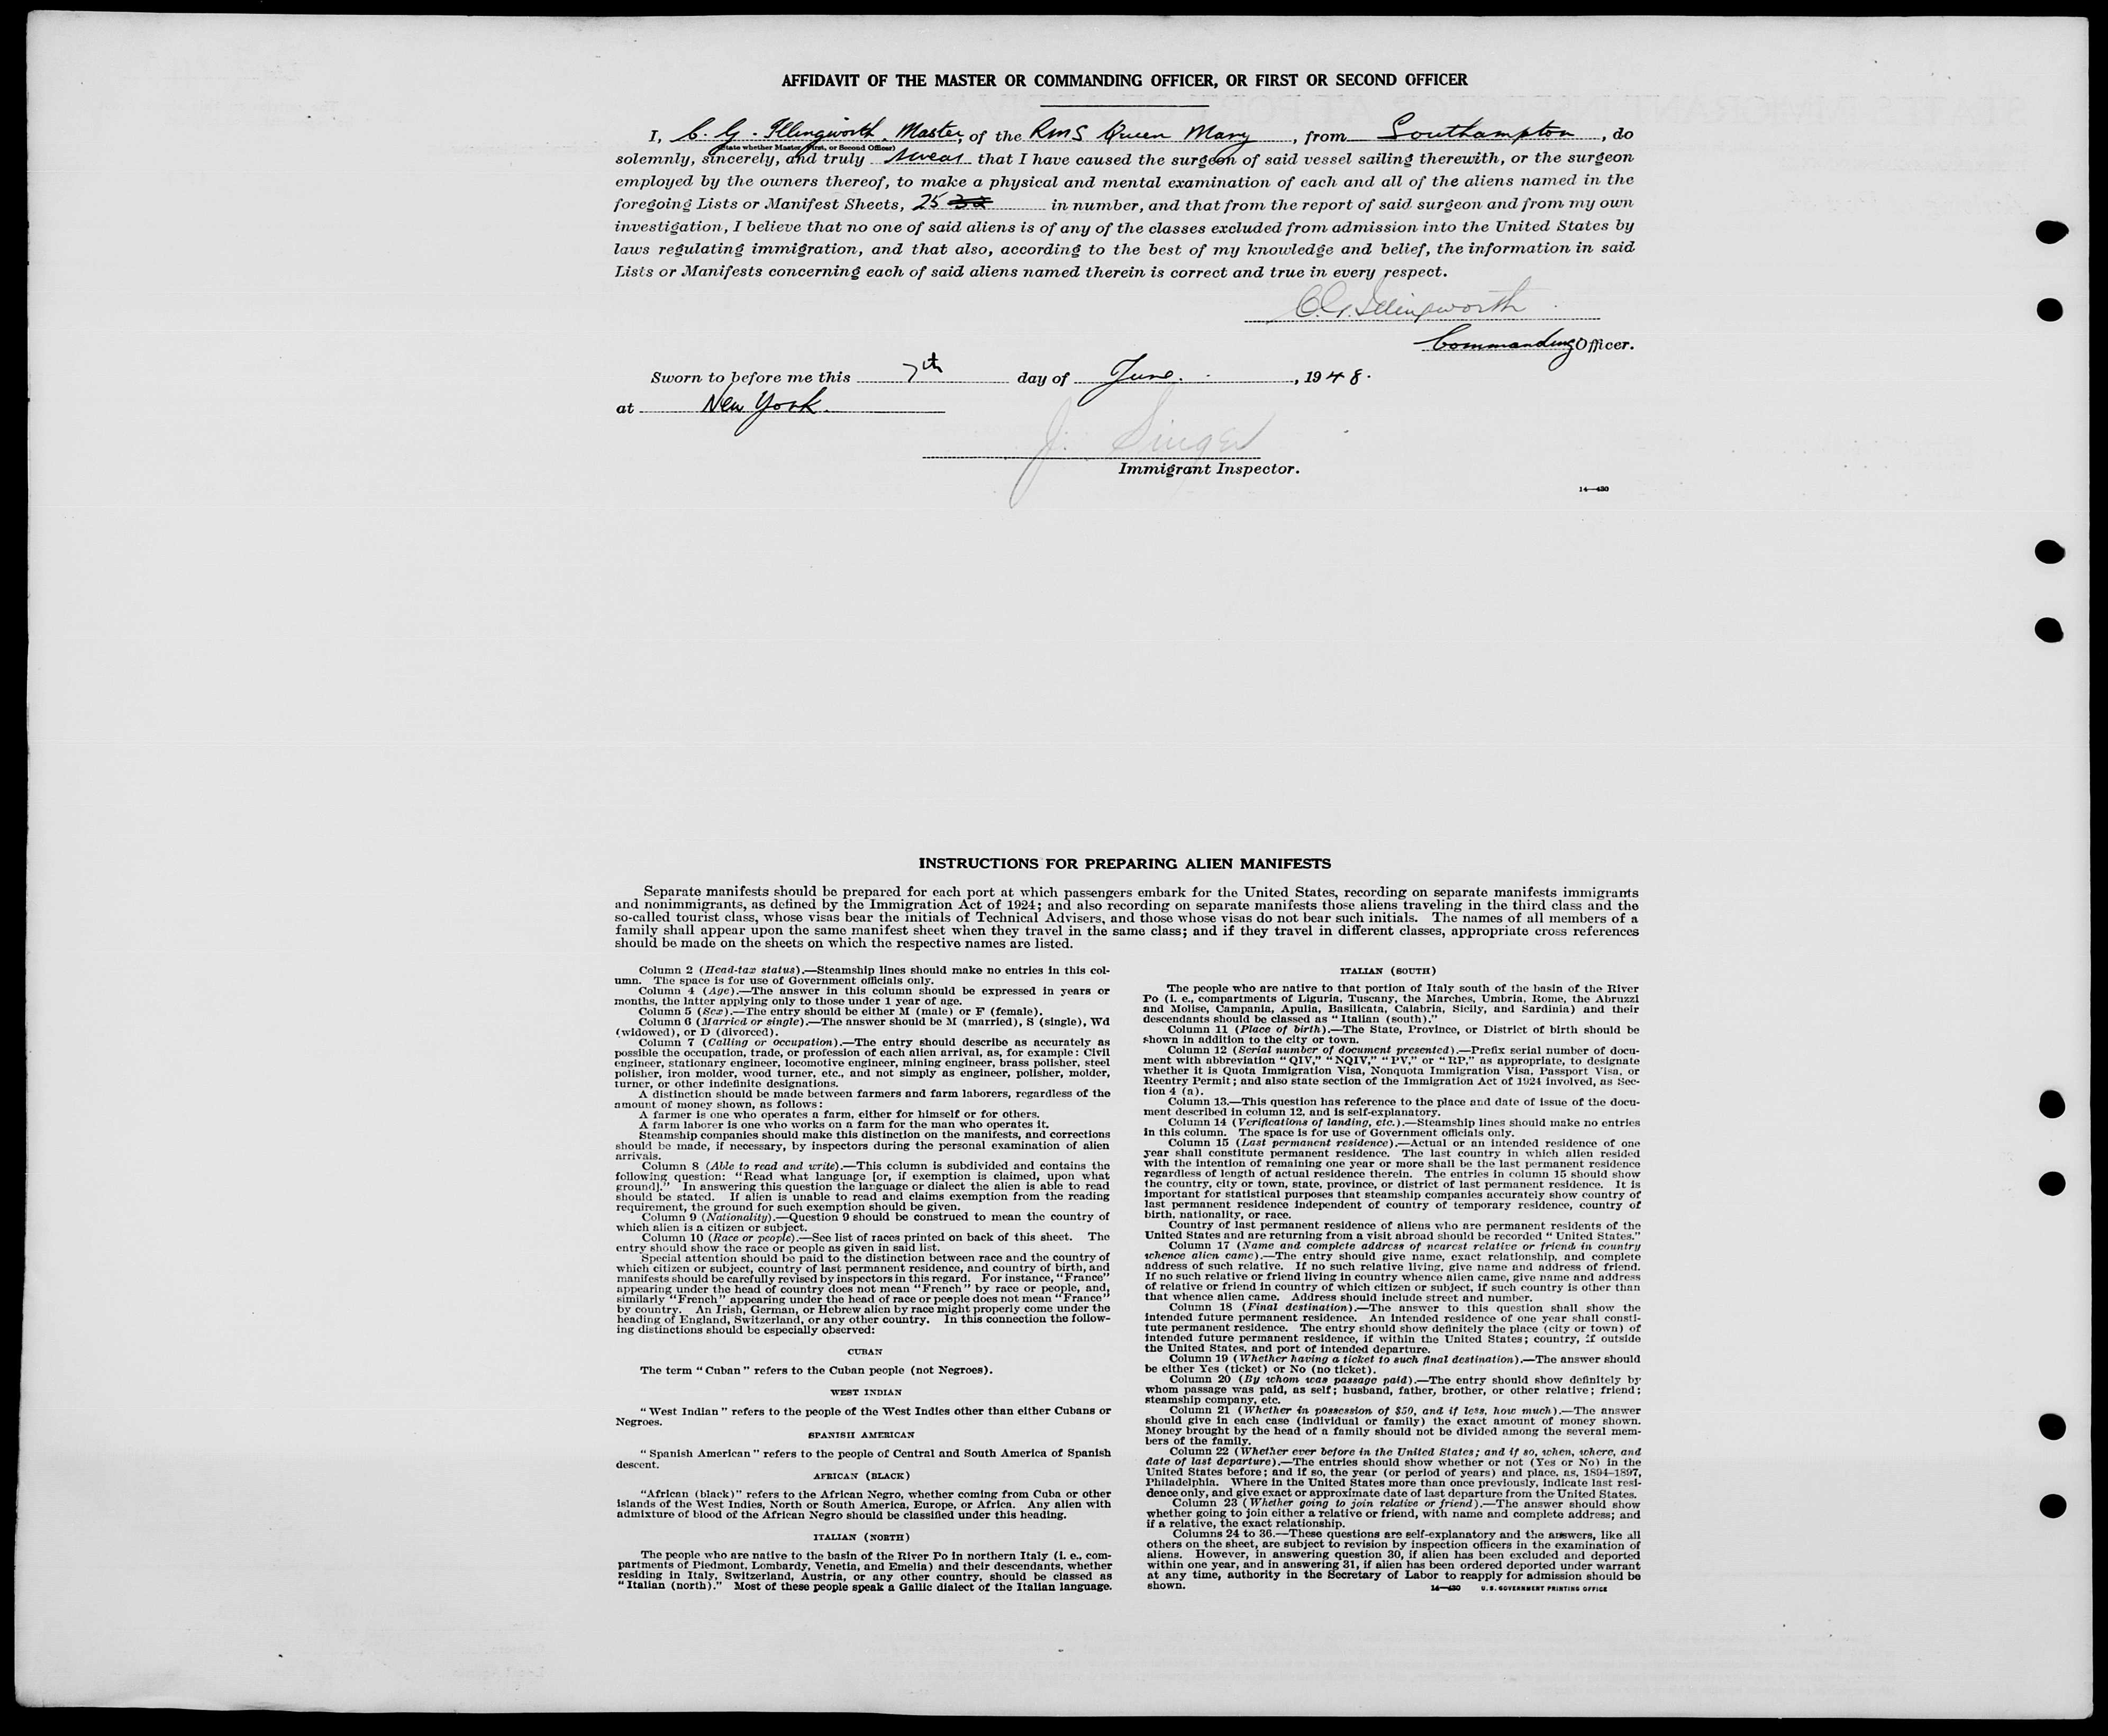 AFFIDAVIT OF THE MASTER OR COMMANDING OFFICER, OR FIRST OR SECOND OFFICER
I, C. G. Illingworth, Master, of the RMS Queen Mary, from Southampton, do
(State whether Master, First, or Second Officer)
solemnly, sincerely, and truly swear that I have caused the surgeon of said vessel sailing therewith, or the surgeon
employed by the owners thereof, to make a physical and mental examination of each and all of the aliens named in the
foregoing Lists or Manifest Sheets, 25 in number, and that from the report of said surgeon and from my own
investigation, I believe that no one of said aliens is of any of the classes excluded from admission into the United States by
laws regulating immigration, and that also, according to the best of my knowledge and belief, the information in said
Lists or Manifests concerning each of said aliens named therein is correct and true in every respect.
C.G. Illingworth
Commanding Officer.
Sworn to before me this 7th day of June, 1948.
at New York
J. Singer
Immigrant Inspector.
14—430
INSTRUCTIONS FOR PREPARING ALIEN MANIFESTS
Separate manifests should be prepared for each port at which passengers embark for the United States, recording on separate manifests immigrants
and nonimmigrants, as defined by the Immigration Act of 1924; and also recording on separate manifests those aliens traveling in the third class and the
so-called tourist class, whose visas bear the initials of Technical Advisers, and those whose visas do not bear such initials. The names of all members of a
family shall appear upon the same manifest sheet when they travel in the same class; and if they travel in different classes, appropriate cross references
should be made on the sheets on which the respective names are listed.
Column 2 (Head-tax status).—Steamship lines should make no entries in this col-
umn. The space is for use of Government officials only.
Column 4 (Age).—The answer in this column should be expressed in years or
months, the latter applying only to those under 1 year of age.
Column 5 (Sex).—The entry should be either M (male) or F (female).
Column 6 (Married or single).—The answer should be M (married), S (single), Wd
(widowed), or D (divorced).
Column 7 (Calling or occupation).—The entry should describe as accurately as
possible the occupation, trade, or profession of each alien arrival, as, for example: Civil
engineer, stationary engineer, locomotive engineer, mining engineer, brass polisher, steel
polisher, iron molder, wood turner, etc., and not simply as engineer, polisher, molder,
turner, or other indefinite designations.
A distinction should be made between farmers and farm laborers, regardless of the
amount of money shown, as follows:
A farmer is one who operates a farm, either for himself or for others.
A farm laborer is one who works on a farm for the man who operates it.
Steamship companies should make this distinction on the manifests, and corrections
should be made, if necessary, by inspectors during the personal examination of alien
arrivals.
Column 8 (Able to read and write).—This column is subdivided and contains the
following question: "Read what language [or, if exemption is claimed, upon what
ground]." In answering this question the language or dialect the alien is able to read
should be stated. If alien is unable to read and claims exemption from the reading
requirement, the ground for such exemption should be given.
Column 9 (Nationality).—Question 9 should be construed to mean the country of
which alien is a citizen or subject.
Column 10 (Race or people).—See list of races printed on back of this sheet. The
entry should show the race or people as given in said list.
Special attention should be paid to the distinction between race and the country of
which citizen or subject, country of last permanent residence, and country of birth, and
manifests should be carefully revised by inspectors in this regard. For instance, "France"
appearing under the head of country does not mean "French" by race or people, and,
similarly "French" appearing under the head of race or people does not mean "France"
by country. An Irish, German, or Hebrew alien by race might properly come under the
heading of England, Switzerland, or any other country. In this connection the follow-
ing distinctions should be especially observed:
CUBAN
The term "Cuban" refers to the Cuban people (not Negroes).
WEST INDIAN
"West Indian" refers to the people of the West Indies other than either Cubans or
Negroes.
SPANISH AMERICAN
"Spanish American" refers to the people of Central and South America of Spanish
descent.
AFRICAN (BLACK)
"African (black)" refers to the African Negro, whether coming from Cuba or other
islands of the West Indies, North or South America, Europe, or Africa. Any alien with
admixture of blood of the African Negro should be classified under this heading.
ITALIAN (NORTH)
The people who are native to the basin of the River Po in northern Italy (i. e., com-
partments of Piedmont, Lombardy, Venetia, and Emelia) and their descendants, whether
residing in Italy, Switzerland, Austria, or any other country, should be classed as
"Italian (north)." Most of these people speak a Gallic dialect of the Italian language.
ITALIAN (SOUTH)
The people who are native to that portion of Italy south of the basin of the River
Po (i. e., compartments of Liguria, Tuscany, the Marches, Umbria, Rome, the Abruzzi
and Molise, Campania, Apulia, Basilicata, Calabria, Sicily, and Sardinia) and their
descendants should be classed as "Italian (south)."
Column 11 (Place of birth).—The State, Province, or District of birth should be
shown in addition to the city or town.
Column 12 (Serial number of document presented).—Prefix serial number of docu-
ment with abbreviation "QIV," "NQIV," "PV," or "RP," as appropriate, to designate
whether it is Quota Immigration Visa, Nonquota Immigration Visa, Passport Visa, or
Reentry Permit; and also state section of the Immigration Act of 1924 involved, as Sec-
tion 4 (a).
Column 13.—This question has reference to the place and date of issue of the docu-
ment described in column 12, and is self-explanatory.
Column 14 (Verifications of landing, etc.).—Steamship lines should make no entries
in this column. The space is for use of Government officials only.
Column 15 (Last permanent residence).—Actual or an intended residence of one
year shall constitute permanent residence. The last country in which alien resided
with the intention of remaining one year or more shall be the last permanent residence
regardless of length of actual residence therein. The entries in column 15 should show
the country, city or town, state, province, or district of last permanent residence. It is
important for statistical purposes that steamship companies accurately show country of
last permanent residence independent of country of temporary residence, country of
birth, nationality, or race.
Country of last permanent residence of aliens who are permanent residents of the
United States and are returning from a visit abroad should be recorded "United States."
Column 17 (Name and complete address of nearest relative or friend in country
whence alien came).—The entry should give name, exact relationship, and complete
address of such relative. If no such relative living, give name and address of friend.
If no such relative or friend living in country whence alien came, give name and address
of relative or friend in country of which citizen or subject, if such country is other than
that whence alien came. Address should include street and number.
Column 18 (Final destination).—The answer to this question shall show the
intended future permanent residence. An intended residence of one year shall consti-
tute permanent residence. The entry should show definitely the place (city or town) of
intended future permanent residence, if within the United States; country, if outside
the United States, and port of intended departure.
Column 19 (Whether having a ticket to such final destination).—The answer should
be either Yes (ticket) or No (no ticket).
Column 20 (By whom was passage paid).—The entry should show definitely by
whom passage was paid, as self; husband, father, brother, or other relative; friend;
steamship company, etc.
Column 21 (Whether in possession of $50, and if less, how much).—The answer
should give in each case (individual or family) the exact amount of money shown.
Money brought by the head of a family should not be divided among the several mem-
bers of the family.
Column 22 (Whether ever before in the United States; and if so, when, where, and
date of last departure).—The entries should show whether or not (Yes or No) in the
United States before; and if so, the year (or period of years) and place, as, 1894–1897,
Philadelphia. Where in the United States more than once previously, indicate last resi-
dence only, and give exact or approximate date of last departure from the United States.
Column 23 (Whether going to join relative or friend).—The answer should show
whether going to join either a relative or friend, with name and complete address; and
if a relative, the exact relationship.
Columns 24 to 36.—These questions are self-explanatory and the answers, like all
others on the sheet, are subject to revision by inspection officers in the examination of
aliens. However, in answering question 30, if alien has been excluded and deported
within one year, and in answering 31, if alien has been ordered deported under warrant
at any time, authority in the Secretary of Labor to reapply for admission should be
shown.
14—430 U. S. GOVERNMENT PRINTING OFFICE